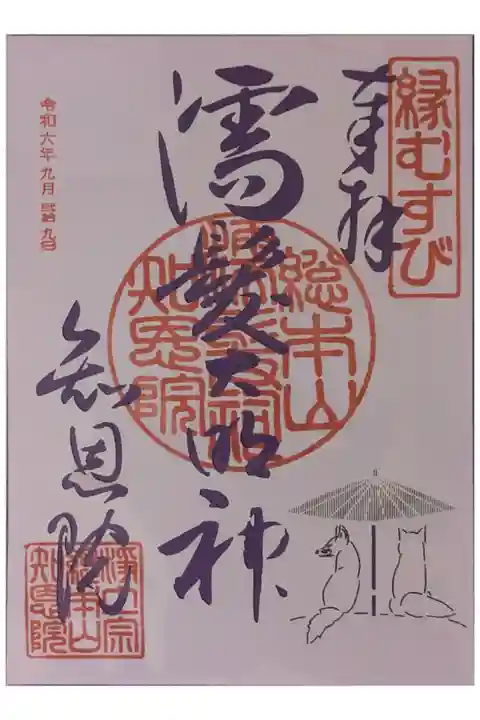 縁むすび
奉拝
濡髪大明神
総本山
知恩院
知恩院
浄土宗
総本山
知恩院
令和六年九月弐拾九日